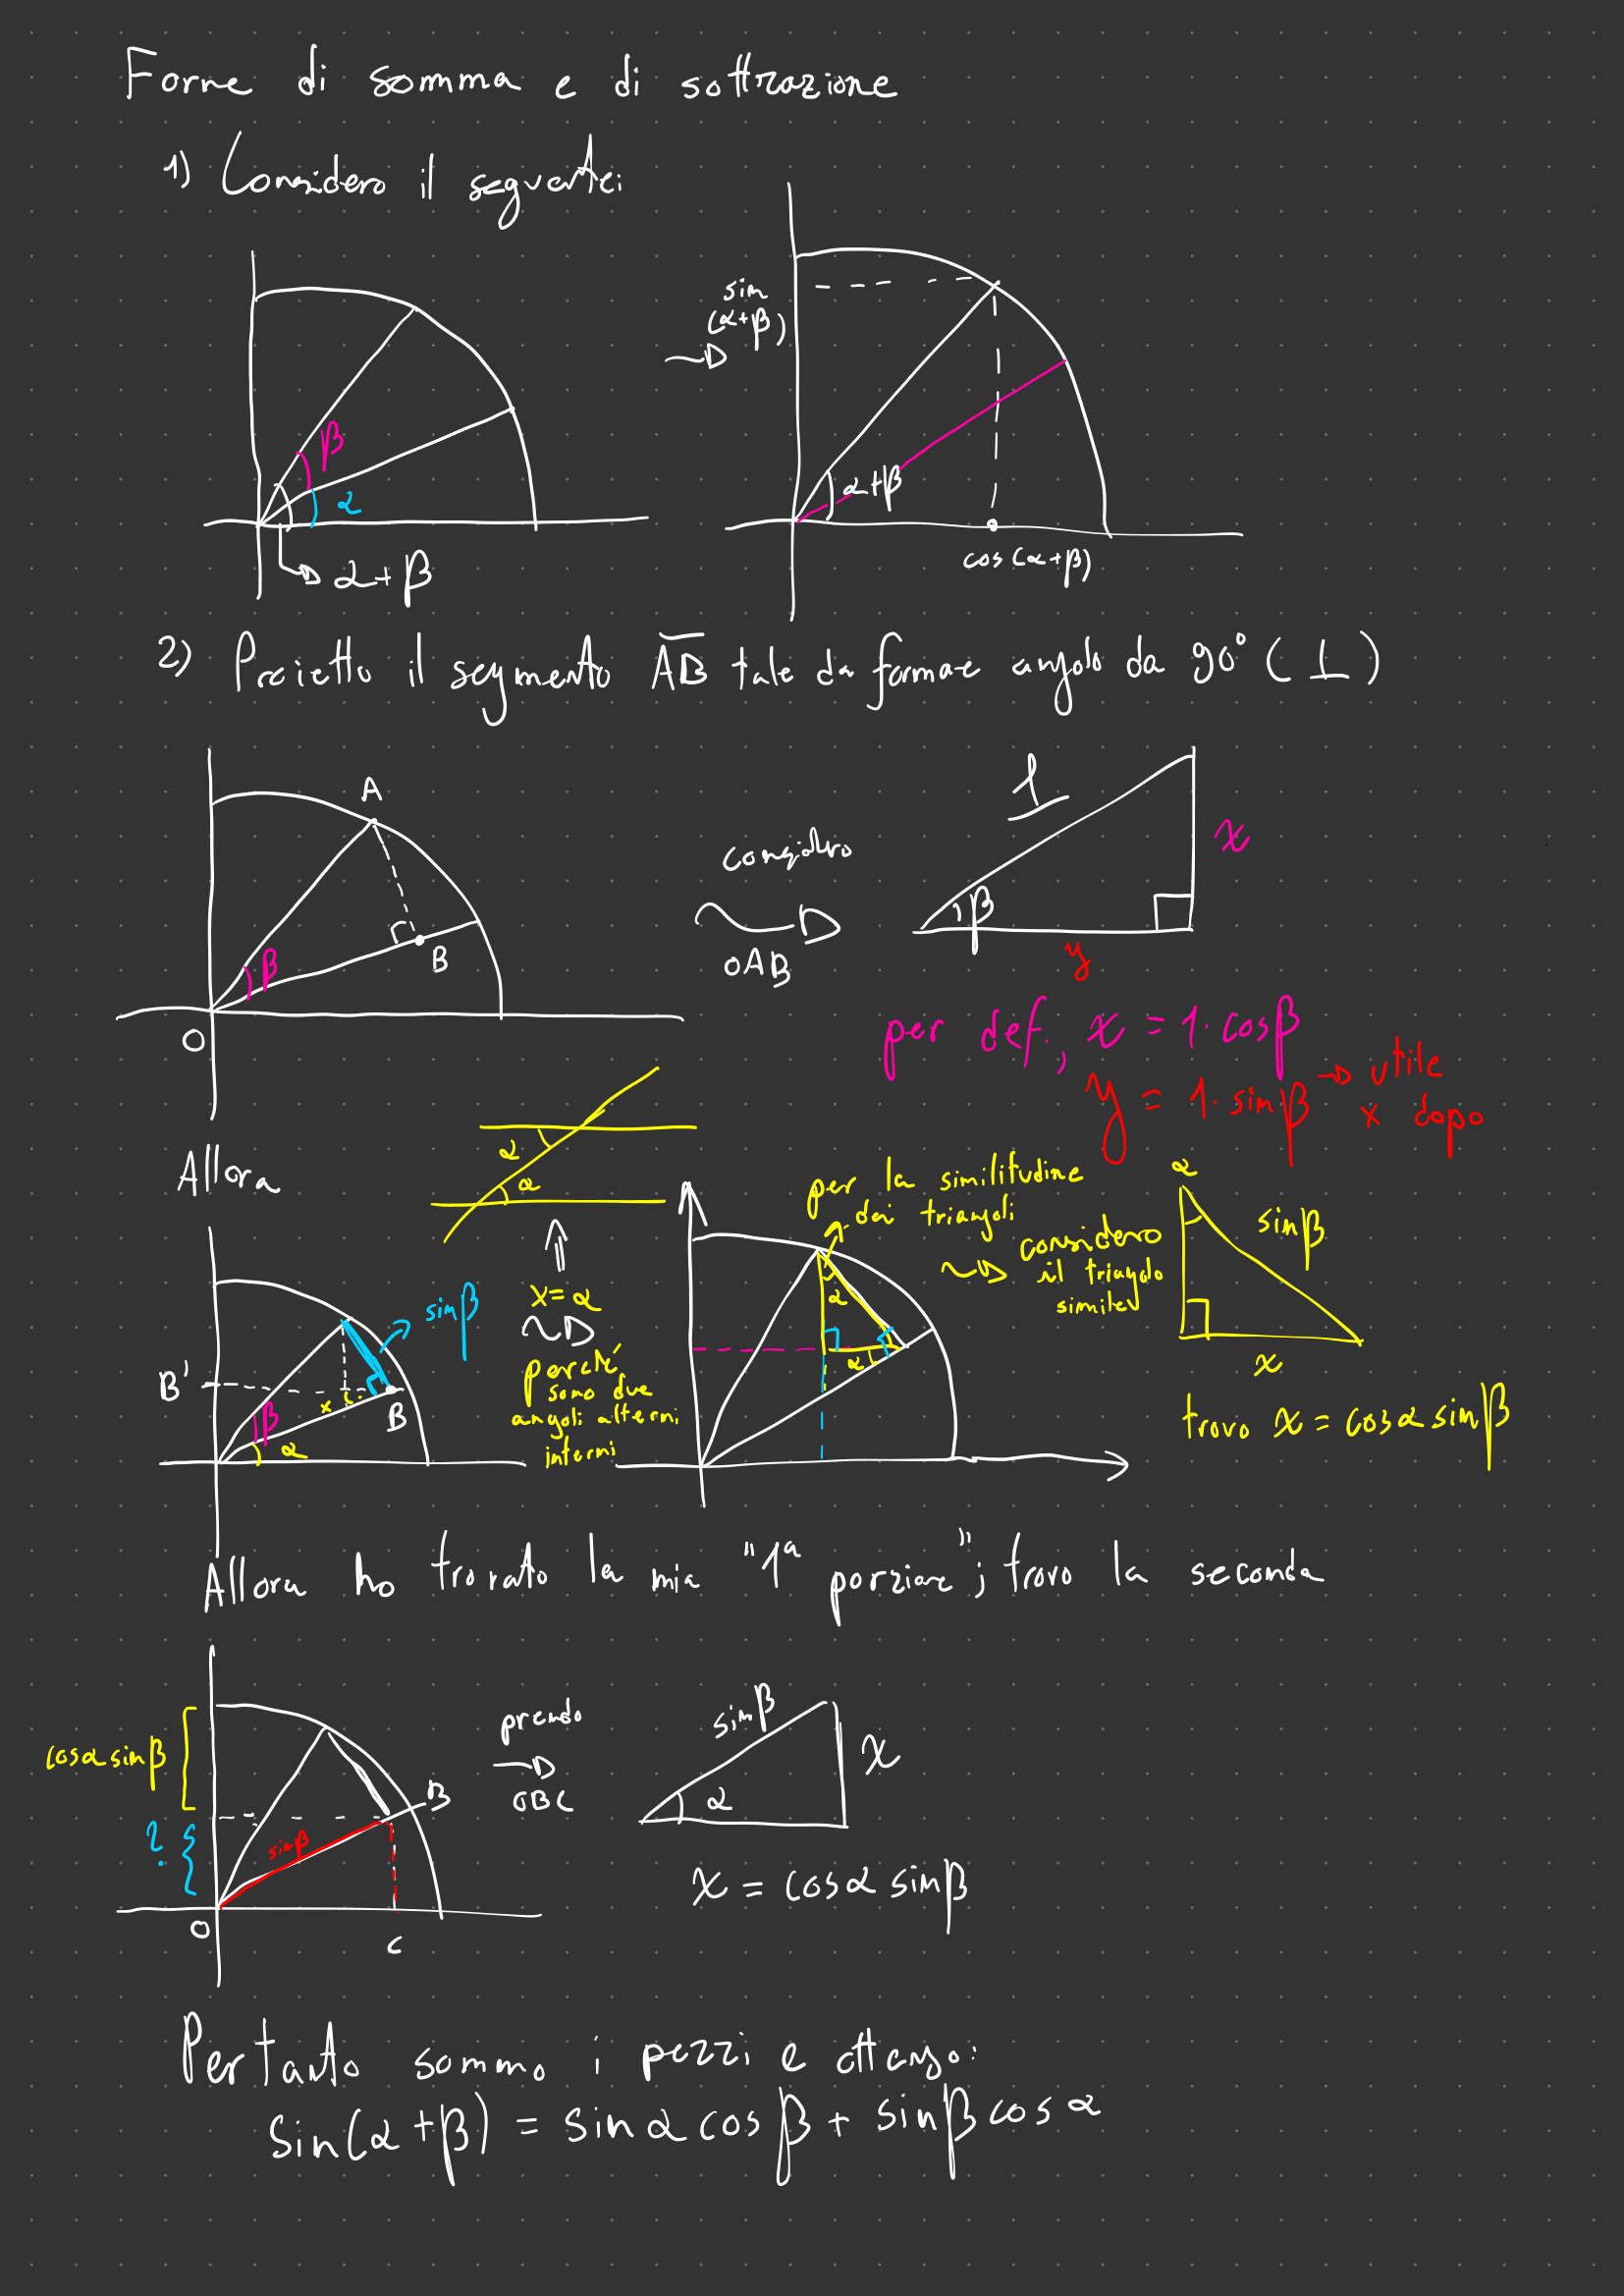 Forme di somma e di sottrazione
1) Considero il seguente:
β
α
α+β
sin
(α+β)
α+β
cos(α+β)
2) Proietto il segmento AB tale da formare angolo da 90° (⊥)
A
B
β
O
considero
OAB
1
β
x
y
per def., x = 1·cosβ
y = 1·sinβ → utile
x dopo
Allora
α
α
B'
β
α
x
B
sinβ
x=α
perché
sono due
angoli alterni
interni
per la similitudine
dei triangoli
α
α
considero
il triangolo
simile
α
sinβ
x
trovo x = cosα sinβ
Allora ho trovato la mia "1ª porzione"; trovo la seconda
cosα sinβ
?
sinβ
B
O
C
prendo
OBC
sinβ
α
x
x = cosα sinβ
Pertanto sommo i pezzi e ottengo:
sin(α+β) = sinα cosβ + sinβ cosα